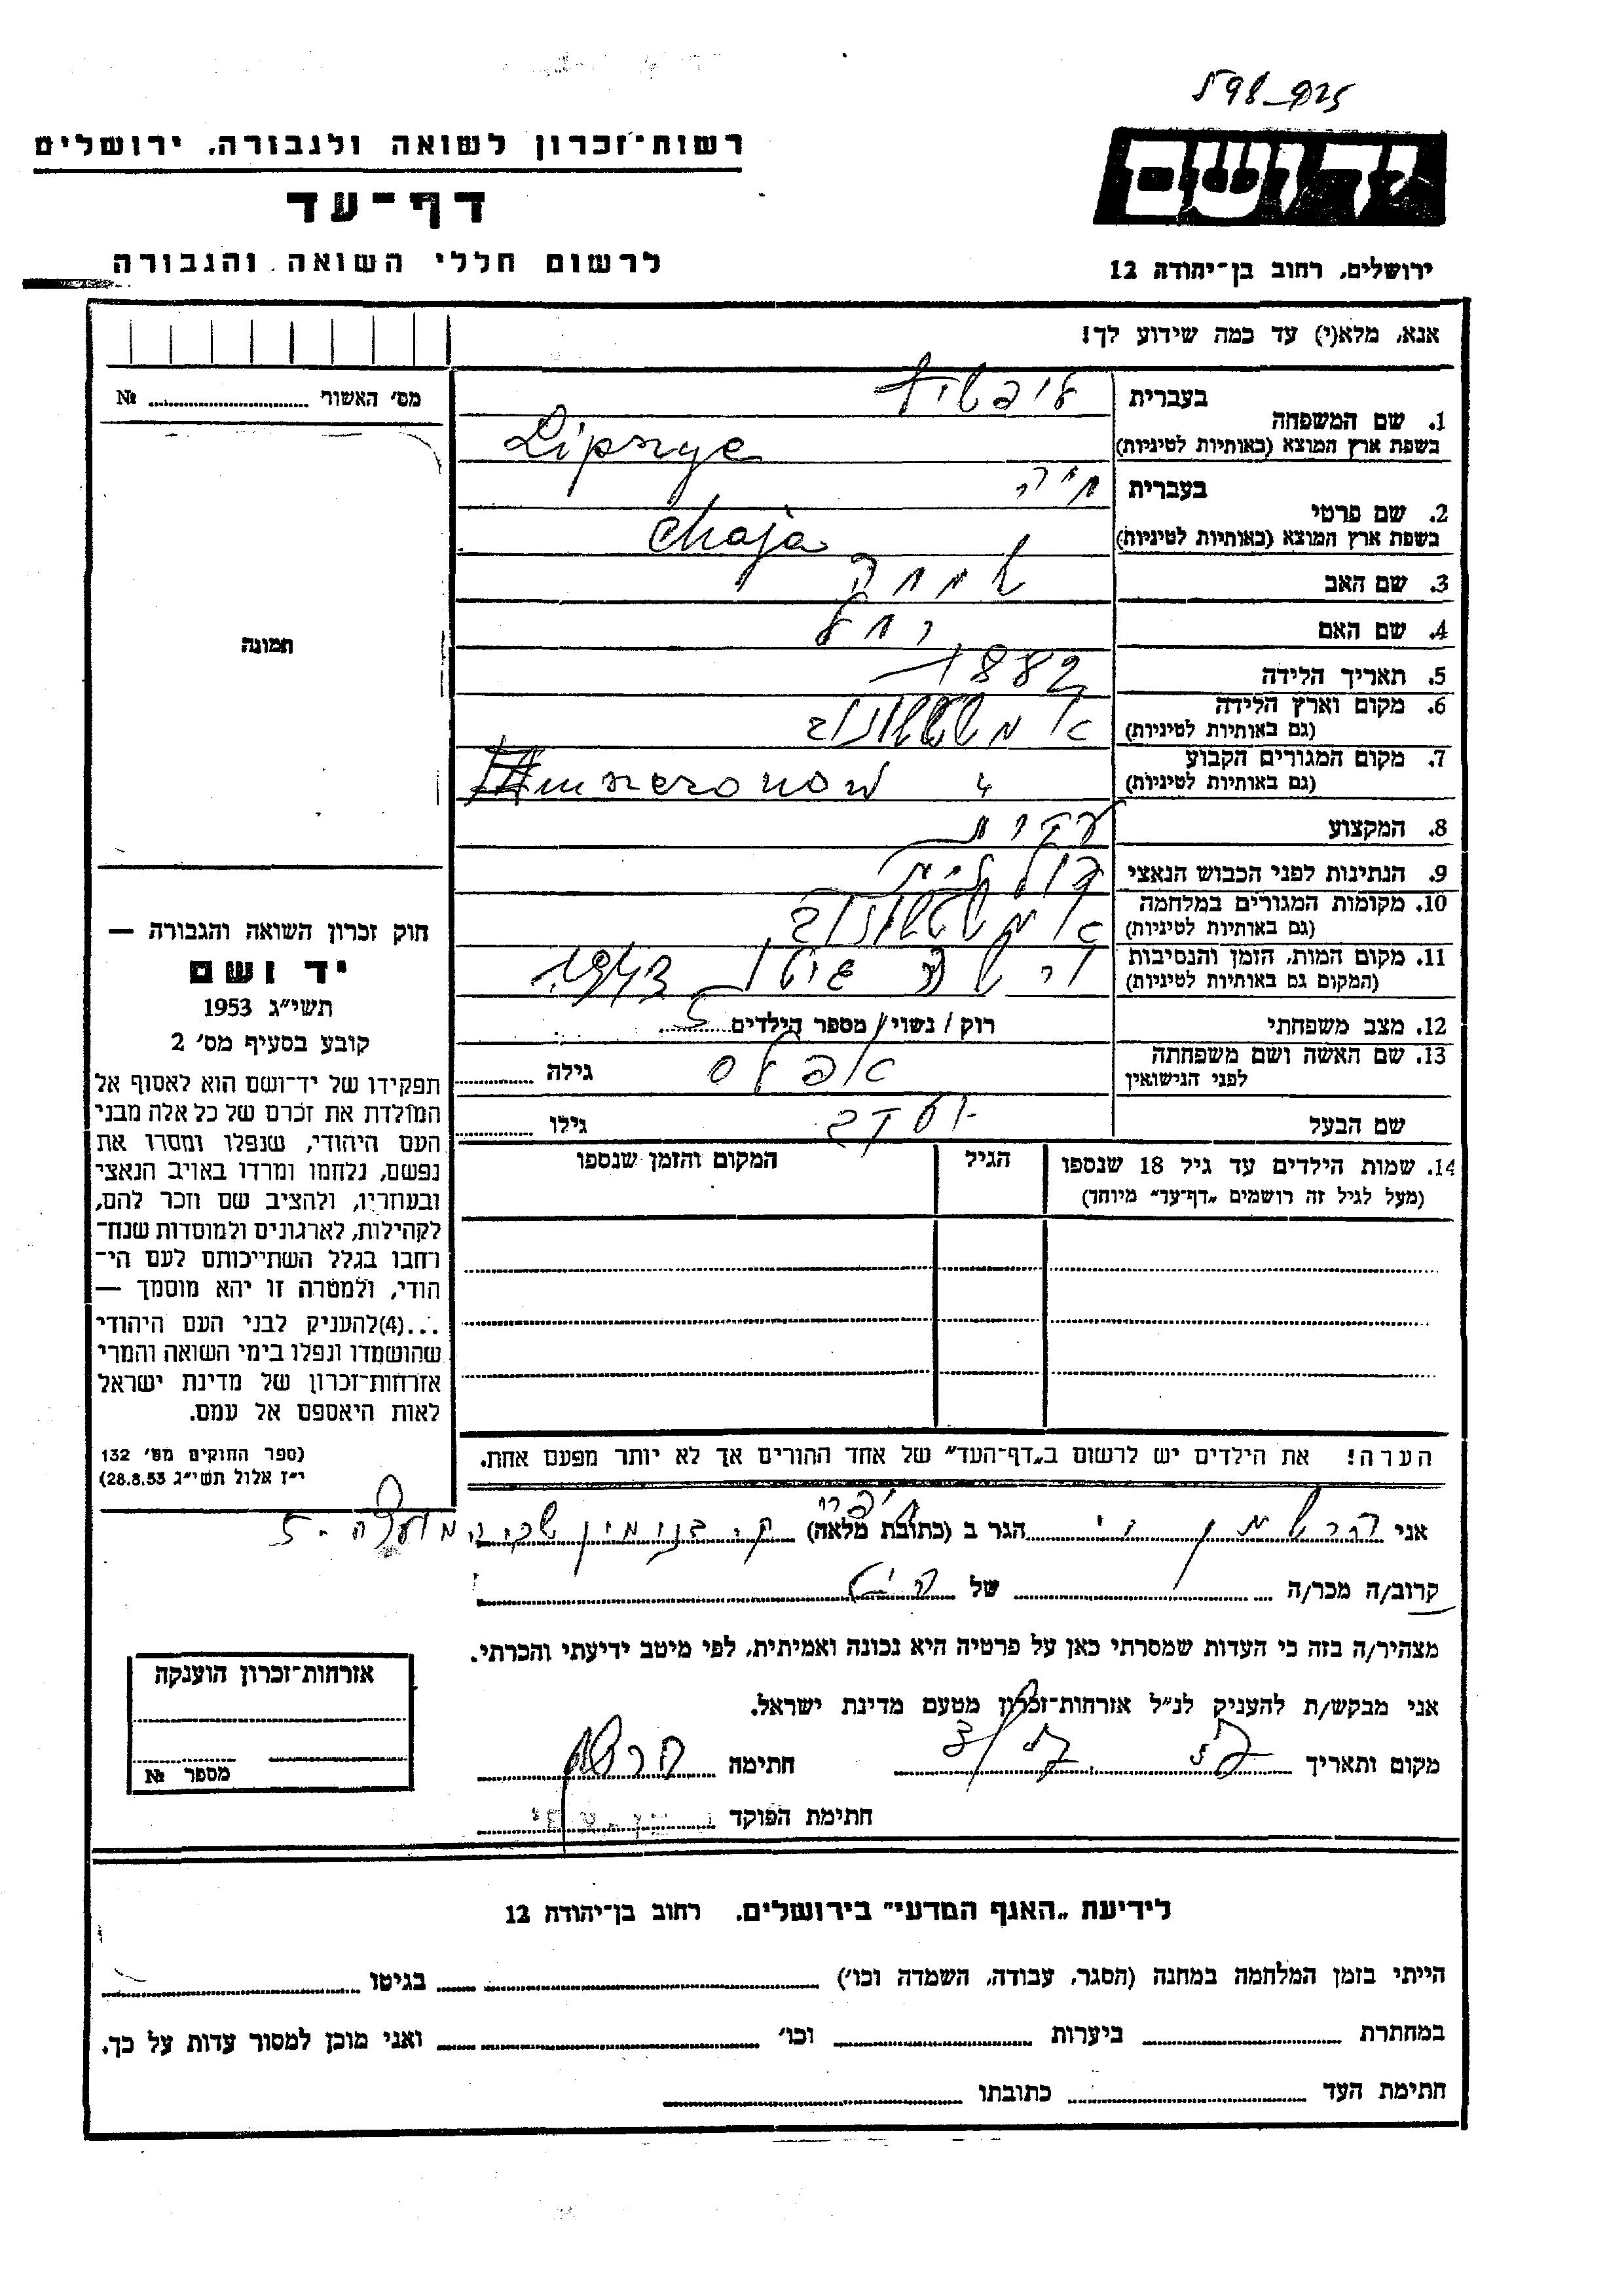 רשות־זכרון לשואה ולגבורה, ירושלים
דף־עד
לרשום חללי השואה והגבורה
יד ושם
ירושלים, רחוב בן־יהודה 12
אנא, מלא(י) עד כמה שידוע לך!
מס׳ האשור № 
1. שם המשפחה
בעברית
בשפת ארץ המוצא (באותיות לטיניות) Lipszyc
2. שם פרטי
בעברית חיה
בשפת ארץ המוצא (באותיות לטיניות) Chaja
3. שם האב שמחה
4. שם האם רחל
5. תאריך הלידה 1882
6. מקום וארץ הלידה
(גם באותיות לטיניות)
7. מקום המגורים הקבוע
(גם באותיות לטיניות)
8. המקצוע עקרת
9. הנתינות לפני הכבוש הנאצי פולנית
10. מקומות המגורים במלחמה
(גם באותיות לטיניות)
11. מקום המות, הזמן והנסיבות 1943
(המקום גם באותיות לטיניות)
12. מצב משפחתי רוק / נשוי / מספר הילדים 5
13. שם האשה ושם משפחתה
לפני הנישואין
גילה
שם הבעל
גילו
14. שמות הילדים עד גיל 18 שנספו
(מעל לגיל זה רושמים „דף־עד״ מיוחד)
הגיל
המקום והזמן שנספו
הערה! את הילדים יש לרשום ב„דף־העד״ של אחד ההורים אך לא יותר מפעם אחת.
תמונה
חוק זכרון השואה והגבורה —
יד ושם
תשי״ג 1953
קובע בסעיף מס׳ 2
תפקידו של יד־ושם הוא לאסוף אל
המולדת את זכרם של כל אלה מבני
העם היהודי, שנפלו ומסרו את
נפשם, נלחמו ומרדו באויב הנאצי
ובעוזריו, ולהציב שם וזכר להם,
לקהילות, לארגונים ולמוסדות שנח־
רחבו בגלל השתייכותם לעם הי־
הודי, ולמטרה זו יהא מוסמך —
...(4)להעניק לבני העם היהודי
שהושמדו ונפלו בימי השואה והמרי
אזרחות־זכרון של מדינת ישראל
לאות היאספם אל עמם.
(ספר החוקים מס׳ 132
י״ז אלול תשי״ג 28.8.53)
אני הגר ב (כתובת מלאה)
קרוב/ה מכר/ה של
מצהיר/ה בזה כי העדות שמסרתי כאן על פרטיה היא נכונה ואמיתית, לפי מיטב ידיעתי והכרתי.
אני מבקש/ת להעניק לנ״ל אזרחות־זכרון מטעם מדינת ישראל.
מקום ותאריך חתימה
חתימת הפוקד
אזרחות־זכרון הוענקה
מספר №
לידיעת „האגף המדעי״ בירושלים. רחוב בן־יהודה 12
הייתי בזמן המלחמה במחנה (הסגר, עבודה, השמדה וכו׳) בגיטו
במחתרת ביערות וכו׳ ואני מוכן למסור עדות על כך.
חתימת העד כתובתו